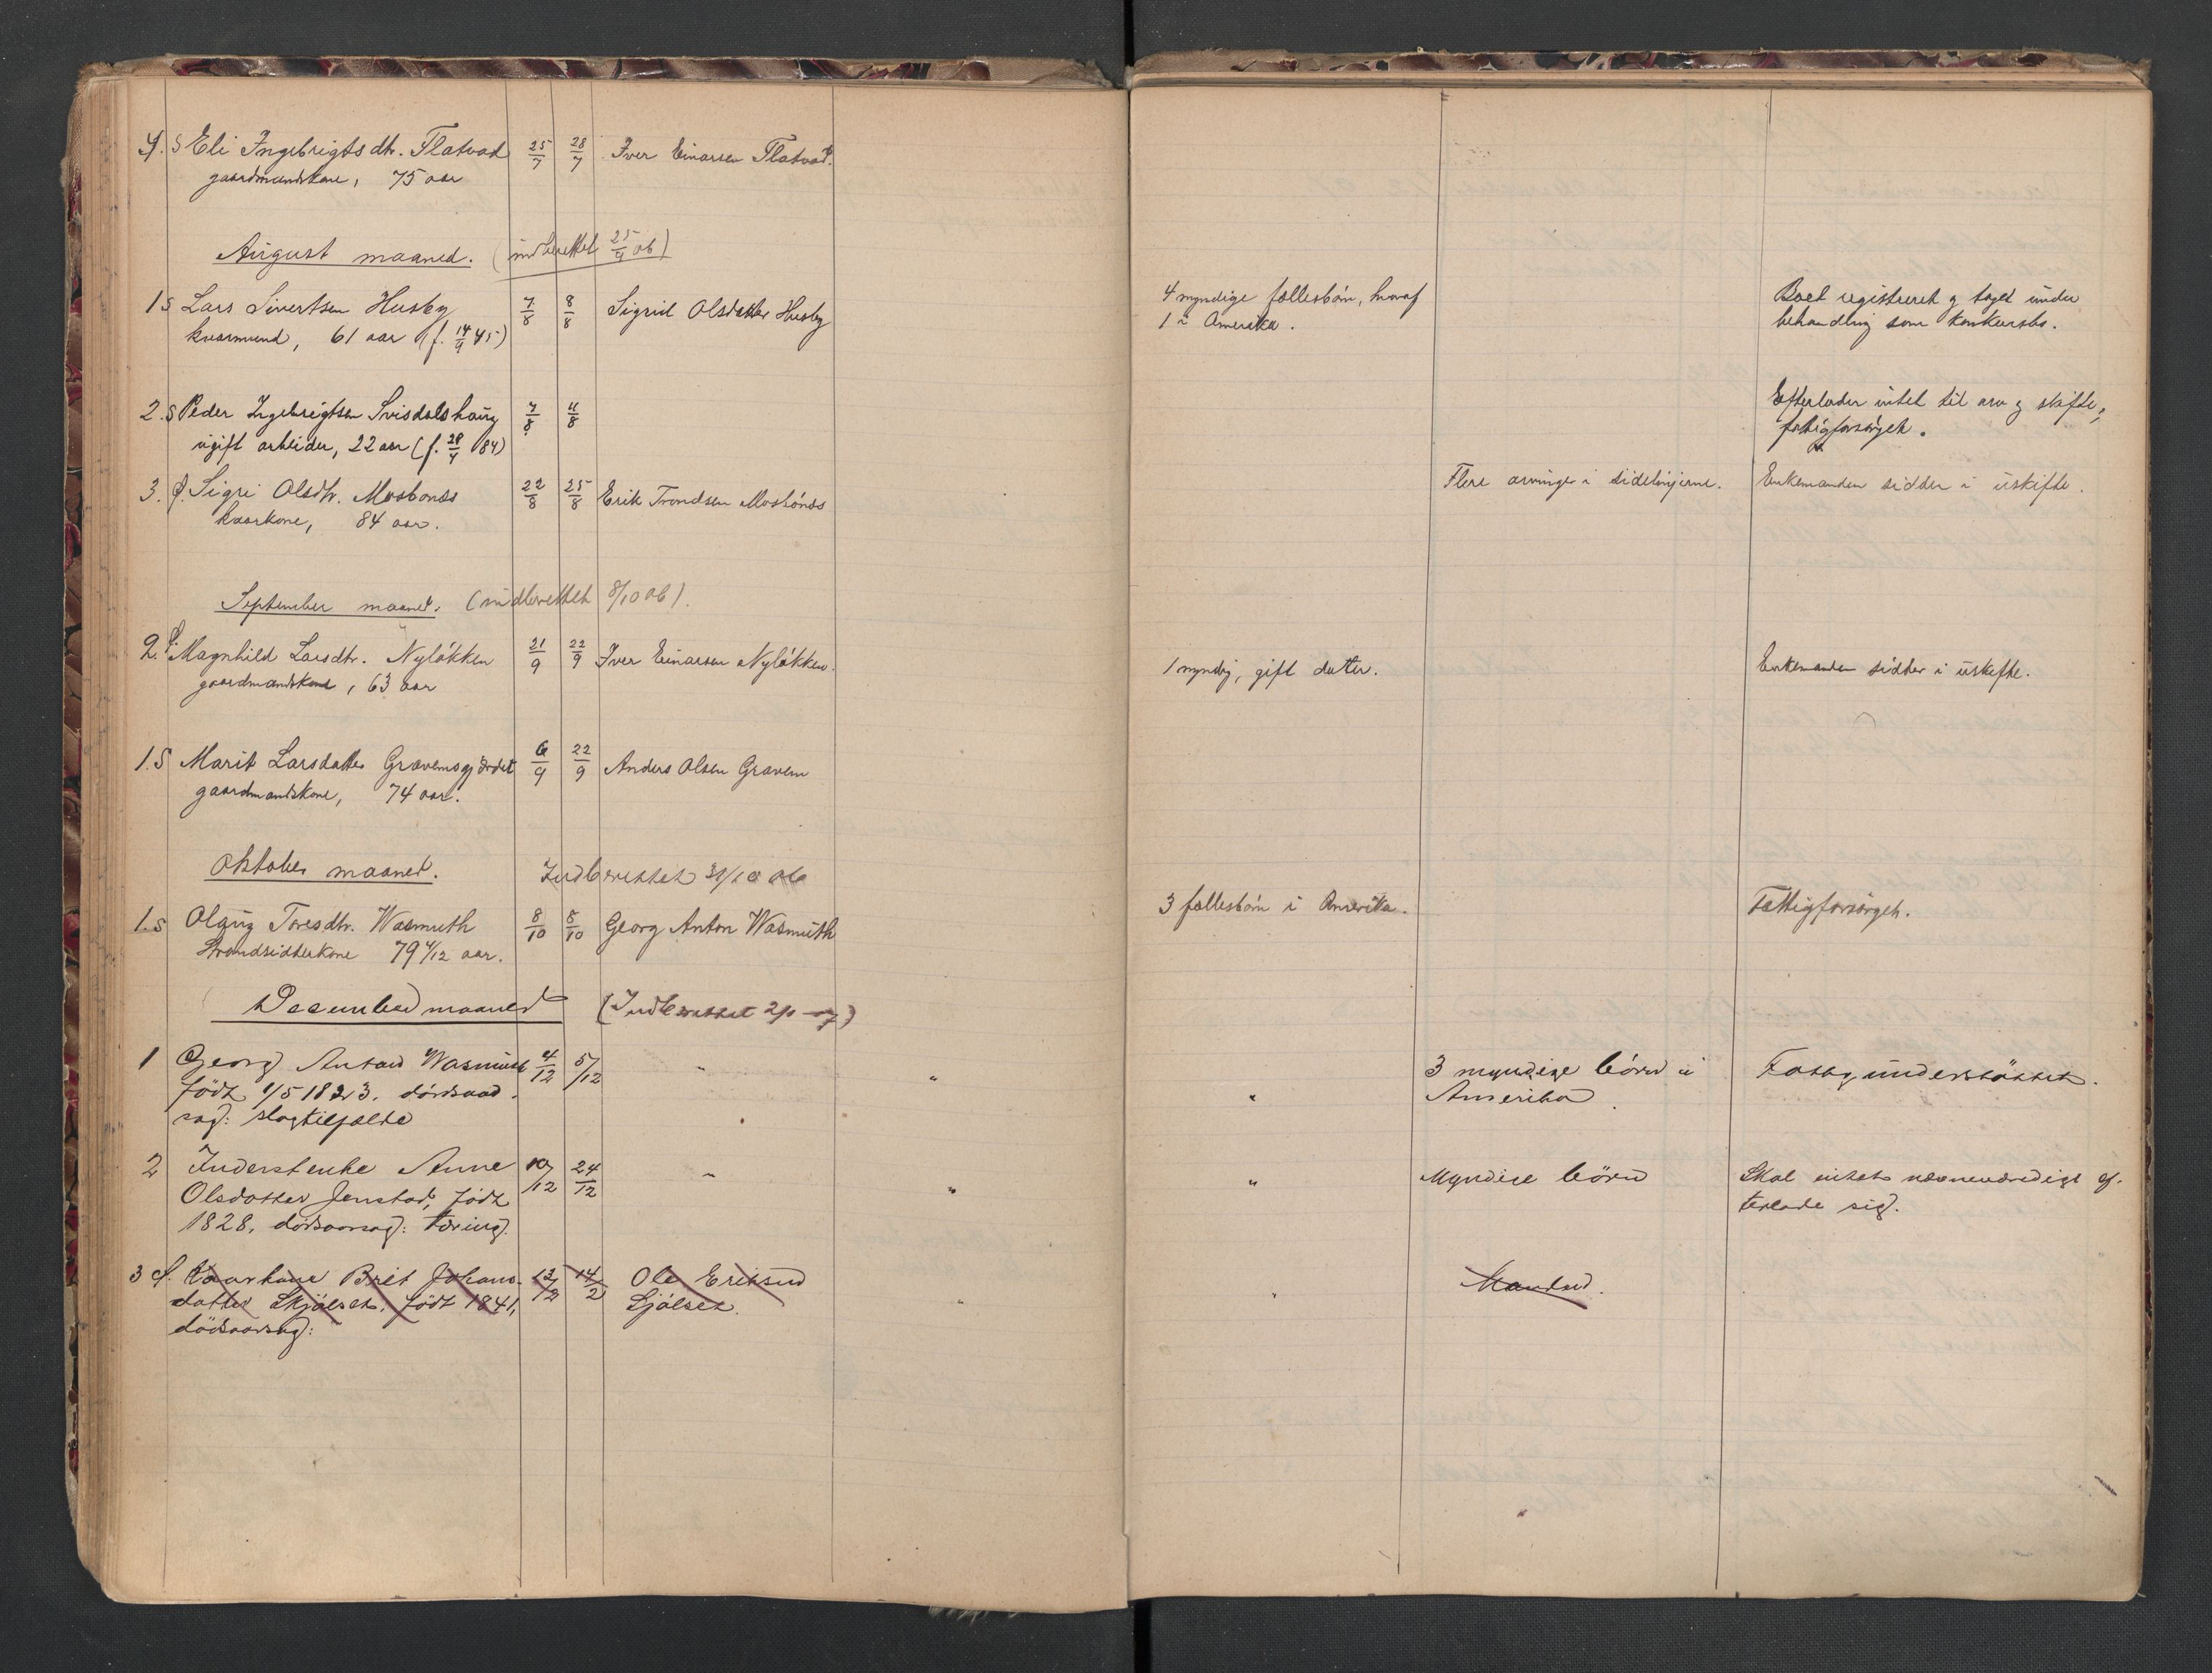 4. S Eli Ingebrigtsdtr. Flatvad 25/7 28/7 Iver Einarsen Flatvad.
gaardmandskone, 75 aar
August maaned. (indberettet 25/9 06)
1 S Lars Sivertsen Husby 7/8 8/8 Sigrid Olsdatter Husby 4 myndige fællesbørn, hvoraf Boet registreret og taget under
kaarmand, 61 aar (f. 14/9 45) 1 i Amerika. behandling som konkursbo.
2. S Peder Ingebrigtsen Svisdalshaug 7/8 11/8 Efterlader intet til arv og skifte;
ugift arbeider, 22 aar (f. 28/4 84) fattigforsørget.
3. Sigri Olsdtr. Mosbønøs 22/8 25/8 Erik Trondsen Mosbønøs Flere arvinger i sidelinjerne. Enkemanden sidder i uskifte.
kaarkone, 84 aar.
September maaned. (indberettet 8/10 06).
2. Magnhild Larsdtr. Nyløkken 21/9 22/9 Iver Einarsen Nyløkken. 1 myndig, gift datter. Enkemanden sidder i uskifte.
gaardmandskone, 63 aar
1. S Marit Larsdatter Gravemsgjerdet 6/9 22/9 Anders Olsen Gravem
gaardmandskone, 74 aar.
Oktober maaned. Indberettet 31/10 06
1. S Olaug Toresdtr. Wasmuth 8/10 8/10 Georg Anton Wasmuth 3 fællesbørn i Amerika. Fattigforsørget.
Strandsidderkone 79 4/12 aar.
December maaned (Indberettet 2/1 - 07)
1 Georg Anton Wasmuth 4/12 5/12 " " " 3 myndige børn i Fattigunderstøttet.
født 1/5 1823. dødsaar Amerika.
sag: slagtilfælde
2 Inderstenke Anne 10/12 24/12 " " " Myndige børn Skal intet nævneværdigt ef-
Olsdatter Jenstad, født terlade sig.
1828. dødsaarsag: tæring.
3 Kaarkone Brit Johans- 12/12 14/2 Ole Eriksen " " Manden.
datter Skjølset, født 1841, Sjølset.
dødsaarsag: